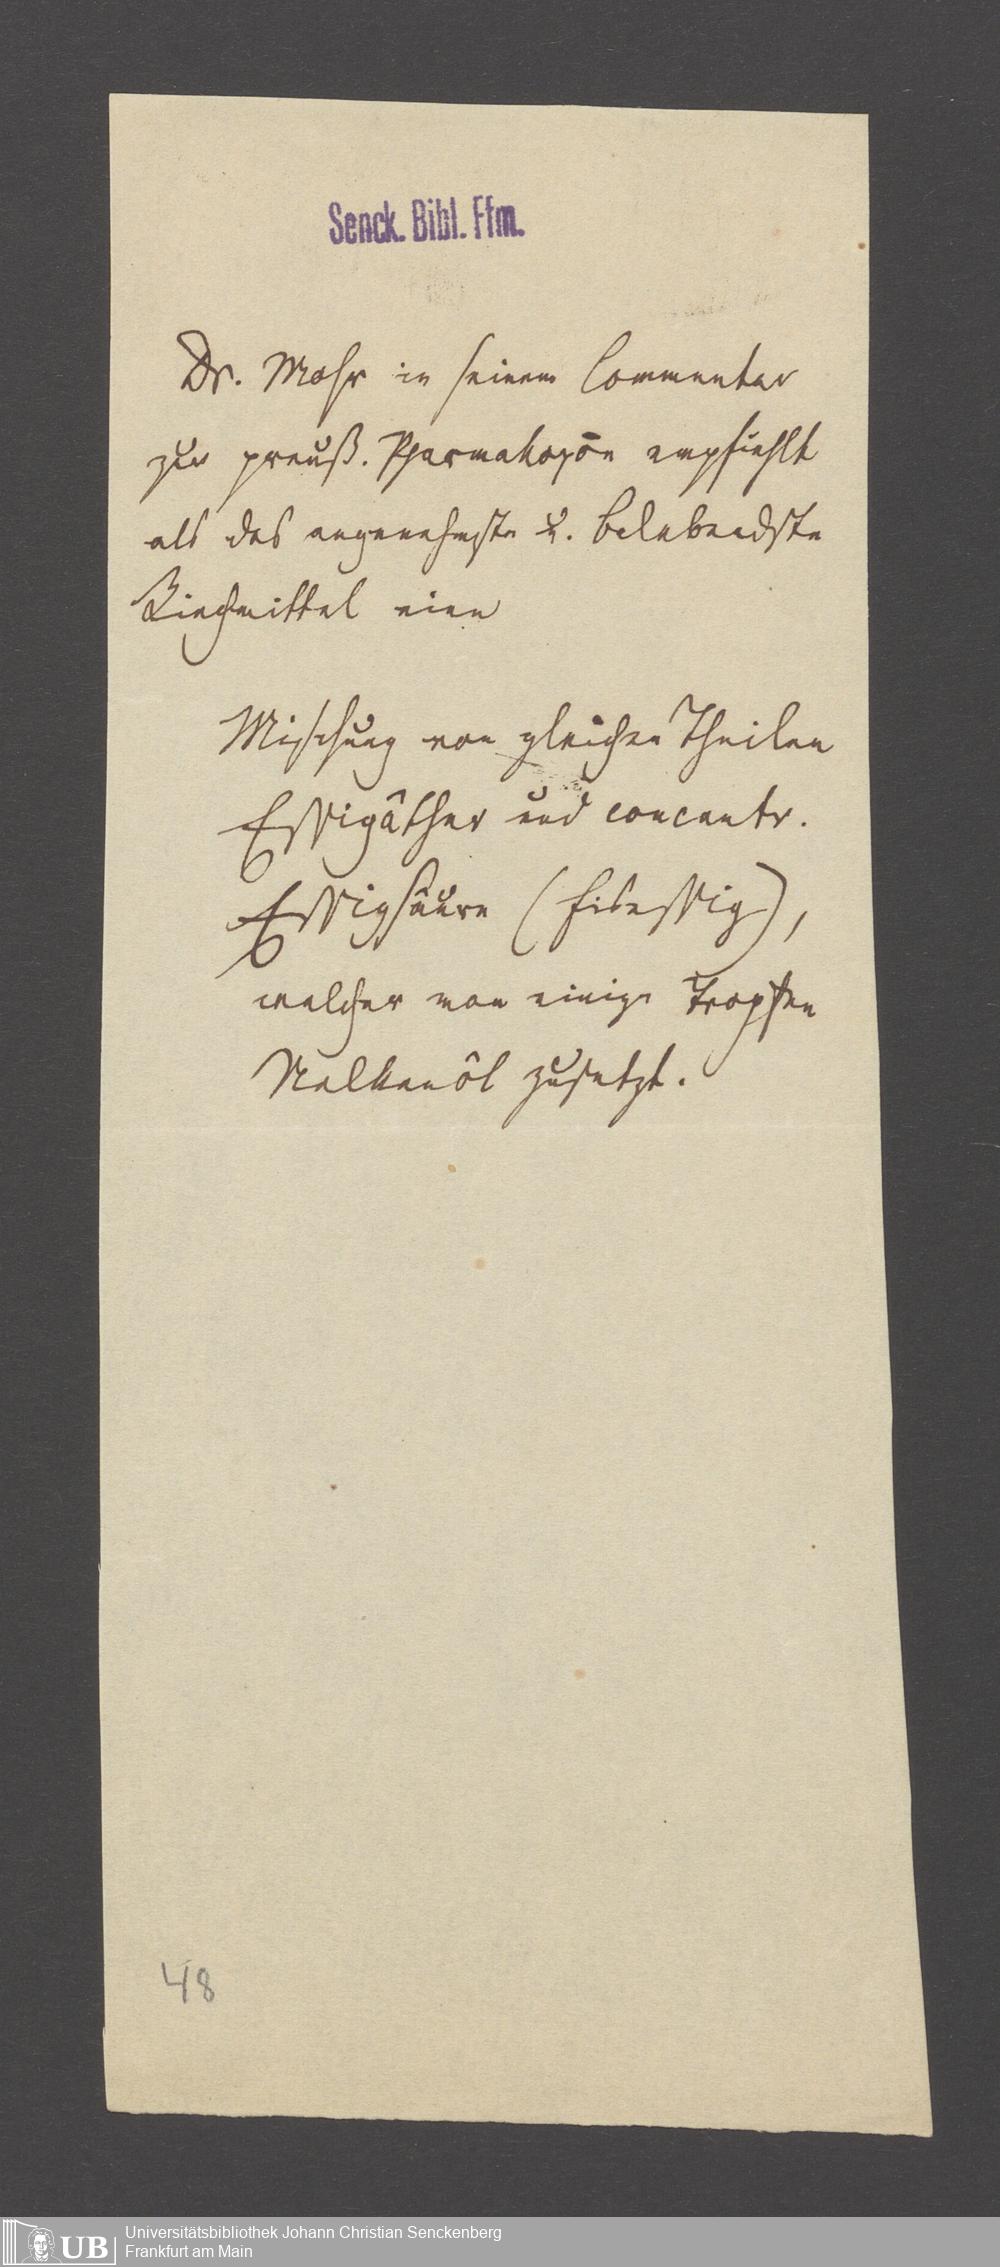 Senck. Bibl. Ffm.
Dr. Mohr in seinem Commentar
zur preuß. Pharmakopöe empfiehlt
als das angenehmste u. belebendste
Riechmittel eine
Mischung von gleichen Theilen
Essigäther und concentr.
Essigsäure (Eisessig),
welcher man einige Tropfen
Nelkenöl zusetzt.
48
UB
Universitätsbibliothek Johann Christian Senckenberg
Frankfurt am Main